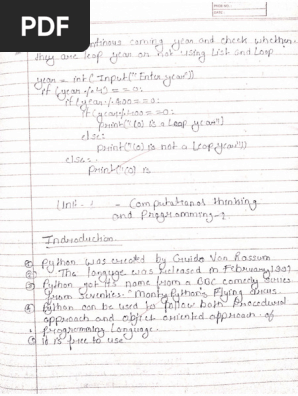 PDF
PAGE NO.:
DATE:
continous coming year and check whether
they are leap year or not using list and loop
year = int(Input("Enter year"))
if (year % 4) == 0:
if (year % 100 == 0:
if (year % 400 == 0:
print("{0} is a leap year")
else:
print("{0} is not a leap year"))
else:
print("{0} is
Unit-1 - Computational thinking
and Programming-2
Introduction
Python was created by Guido Van Rossum
The language was released in February 1991
Python got its name from a BBC comedy series
from seventies "Monty Python's Flying circus
Python can be used to follow both Procedural
approach and object oriented approach of
Programming Language.
it is free to use